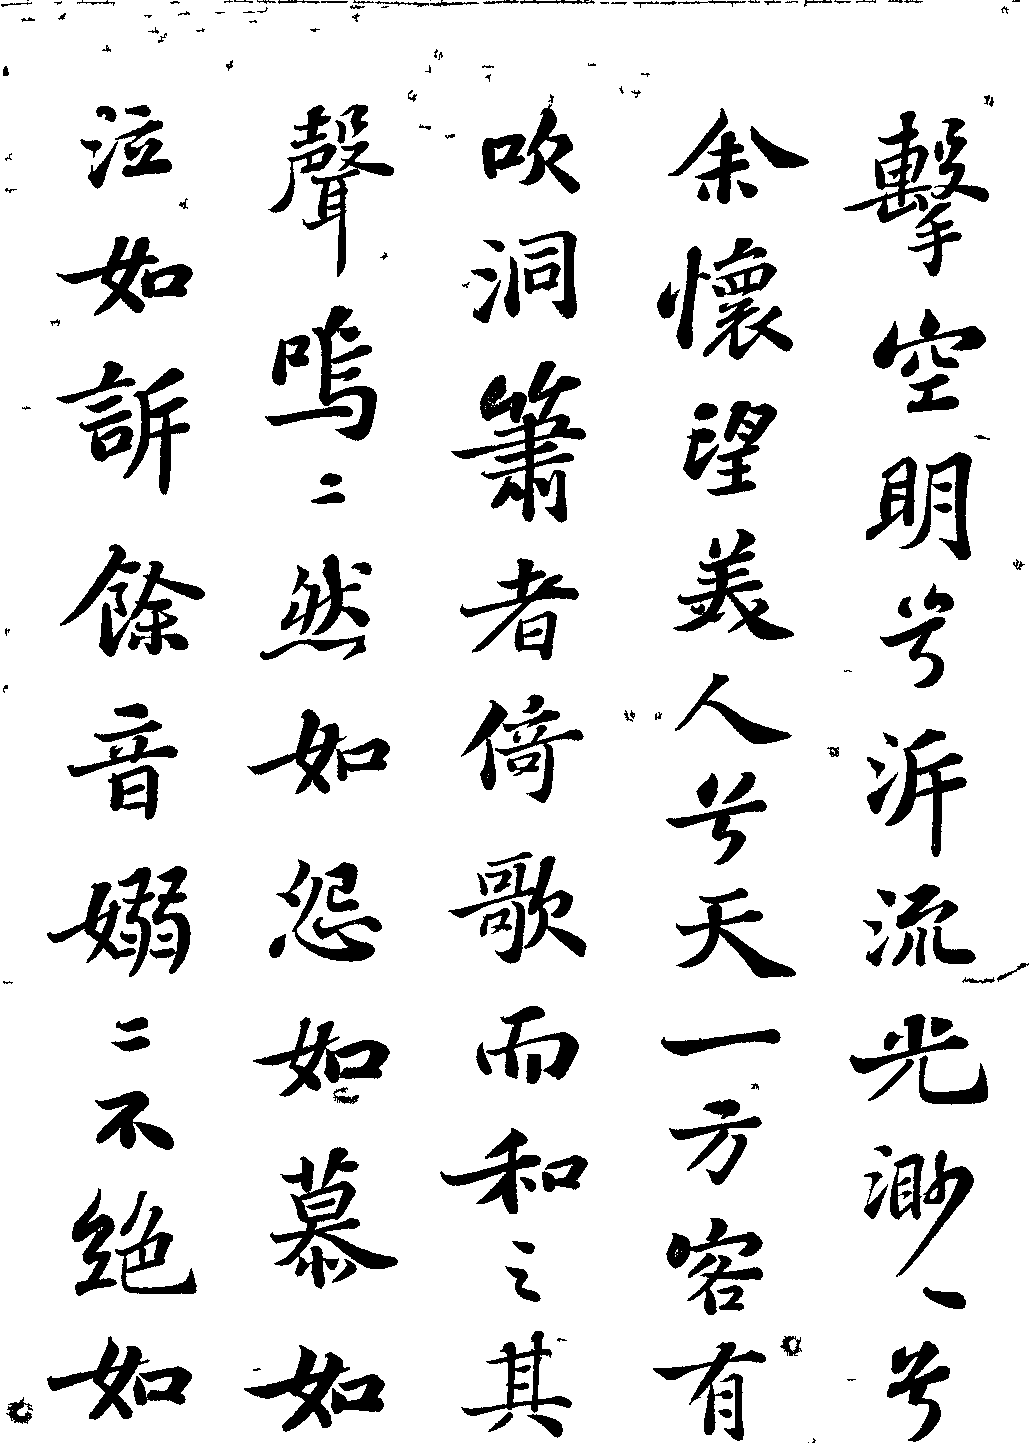 擊空明兮泝流光渺丶兮
余懷望美人兮天一方客有
吹洞簫者倚歌而和之其
聲嗚二然如怨如慕如
泣如訴餘音嫋二不絕如